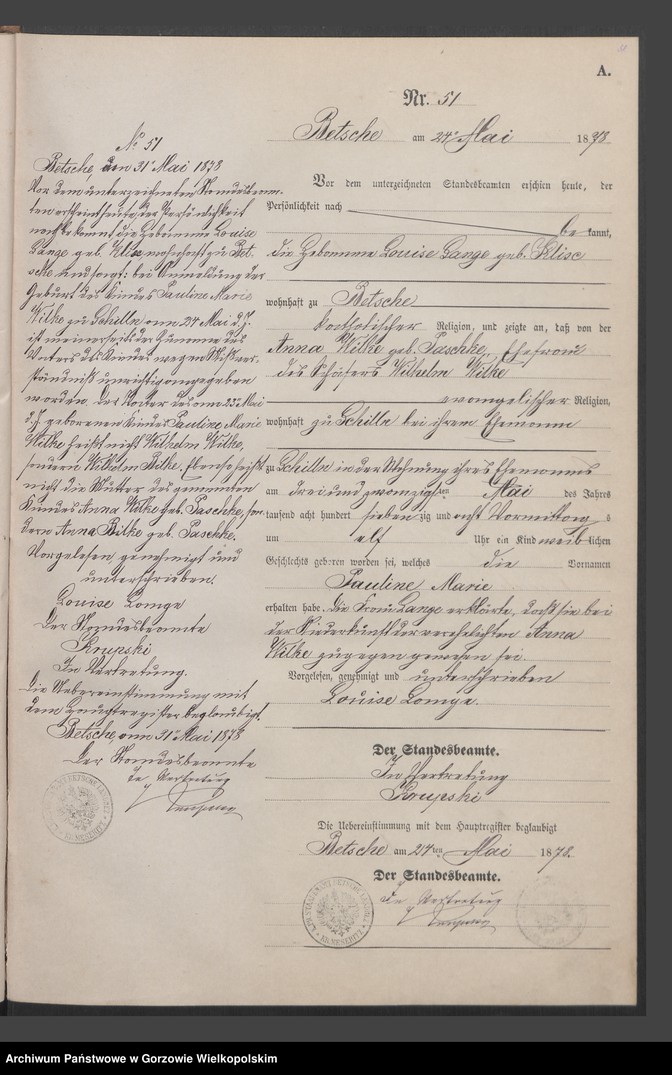 A.
Nr. 51
Betsche am 24ten Mai 1878
Vor dem unterzeichneten Standesbeamten erschien heute, der
Persönlichkeit nach
be kannt,
die Hebamme Louise Lange geb. Klisc
wohnhaft zu Betsche
katholischer Religion, und zeigte an, daß von der
Anna Wilke geb. Paschke, Ehefrau
des Schäfers Wilhelm Wilke
evangelischer Religion,
wohnhaft zu Schilln bei ihrem Ehemanne
zu Schilln in der Wohnung ihres Ehemannes
am drei und zwanzigsten Mai des Jahres
tausend acht hundert siebenzig und acht Vormittags
um elf Uhr ein Kind weiblichen
Geschlechts geboren worden sei, welches die Vornamen
Pauline Marie
erhalten habe. Die Frau Lange erklärte, daß sie bei
der Niederkunft der verehelichten Anna
Wilke zugegen gewesen sei.
Vorgelesen, genehmigt und unterschrieben
Louise Lange.
Der Standesbeamte.
In Vertretung
Krupski
Die Uebereinstimmung mit dem Hauptregister beglaubigt
Betsche am 24ten Mai 1878.
Der Standesbeamte.
In Vertretung
No 51
Betsche, den 31 Mai 1878
Vor dem unterzeichneten Standesbeam-
ten erscheint heute, der Persönlichkeit
nach bekannt, die Hebamme Louise
Lange geb. wohnhaft zu Bet-
sche und sagt: bei Anmeldung der
Geburt des Kindes Pauline Marie
Wilke zu Schilln am 24 Mai d. J.
ist meinerseits der Zuname des
Vaters des Kindes wegen Mißver-
ständniß unrichtig angegeben
worden. Der Vater des am 23 Mai
d. J. geborenen Kindes Pauline Marie
Wilke heißt nicht Wilhelm Wilke,
sondern Wilhelm Bilke. Ebenso heißt
nicht die Mutter des genannten
Kindes Anna Wilke geb. Paschke, son-
dern Anna Bilke geb. Paschke.
Vorgelesen genehmigt und
unterschrieben.
Louise Lange
Der Standesbeamte
Krupski
In Vertretung.
Die Uebereinstimmung mit
dem Hauptregister beglaubigt.
Betsche, am 31 Mai 1878
Der Standesbeamte
In Vertretung
Archiwum Państwowe w Gorzowie Wielkopolskim